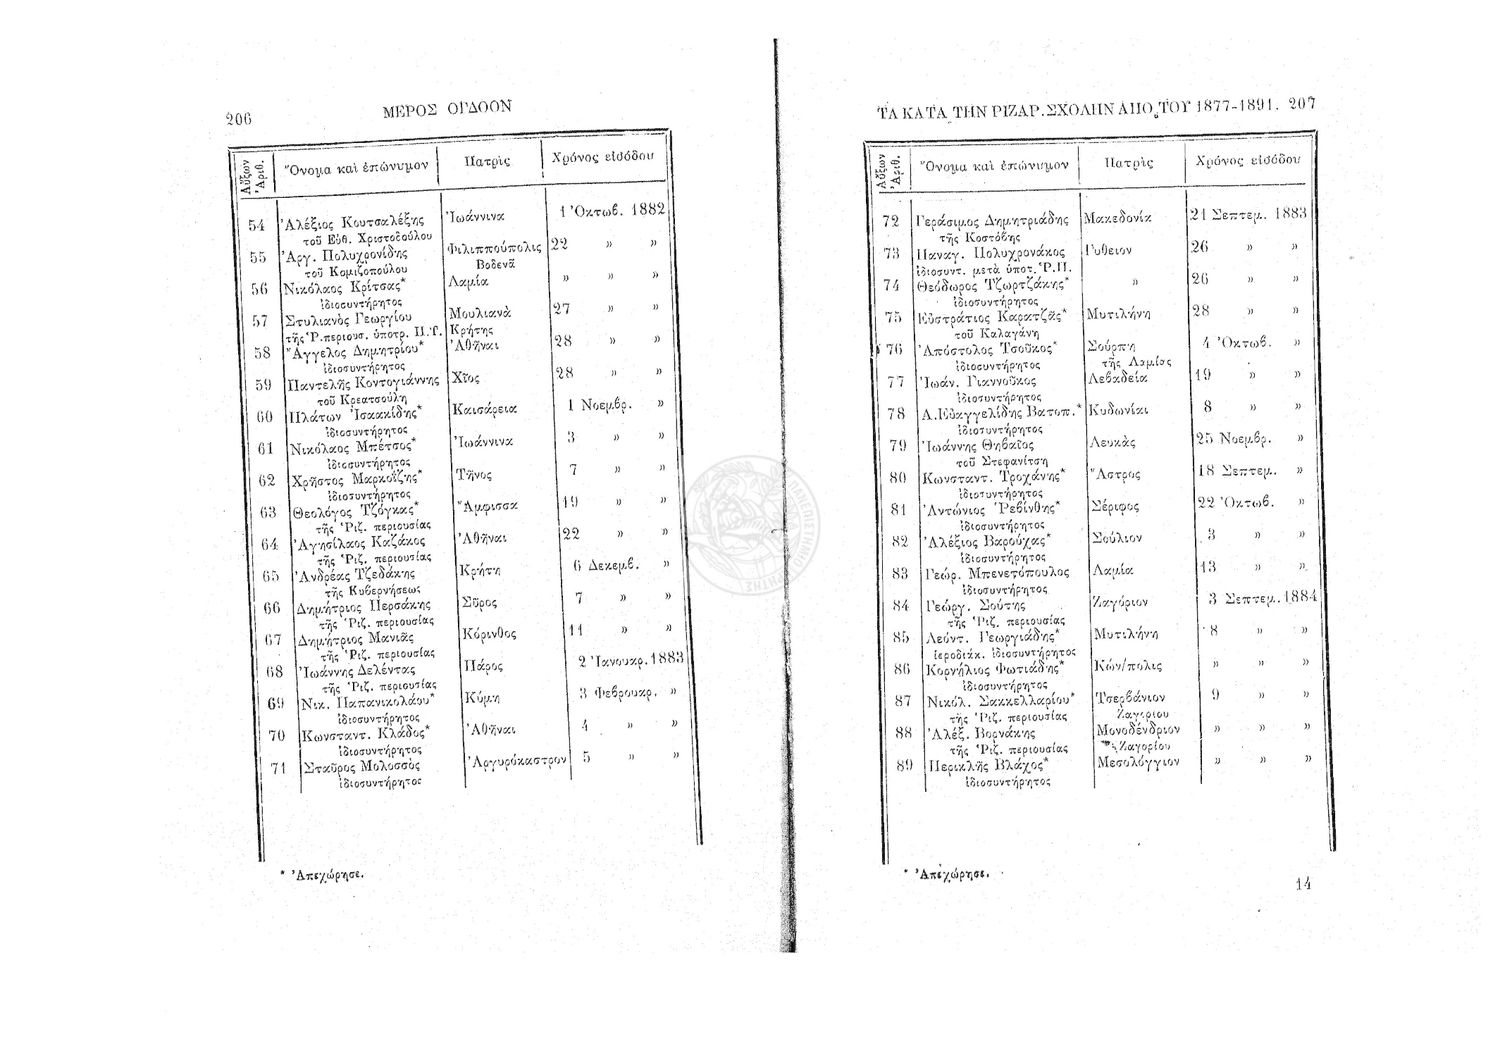 206
ΜΕΡΟΣ ΟΓΔΟΟΝ
Αὔξων Ἀριθ. Ὄνομα καὶ ἐπώνυμον Πατρὶς Χρόνος εἰσόδου
54 Ἀλέξιος Κουτσαλέξης Ἰωάννινα 1 Ὀκτωβ. 1882
τοῦ Εὐθ. Χριστοδούλου
55 Ἀργ. Πολυχρονίδης Φιλιππούπολις 22 » »
τοῦ Κομιζοπούλου Βοδενᾶ
56 Νικόλαος Κρίτσας* Λαμία » » »
ἰδιοσυντήρητος
57 Στυλιανὸς Γεωργίου Μουλιανὰ 27 » »
τῆς Ῥ. περιουσ. ὑποτρ. Π.Τ. Κρήτης
58 Ἄγγελος Δημητρίου* Ἀθῆναι 28 » »
ἰδιοσυντήρητος
59 Παντελῆς Κοντογιάννης Χῖος 28 » »
τοῦ Κρεατσούλη
60 Πλάτων Ἰσαακίδης* Καισάρεια 1 Νοεμβρ. »
ἰδιοσυντήρητος
61 Νικόλαος Μπέτσος* Ἰωάννινα 3 » »
ἰδιοσυντήρητος
62 Χρῆστος Μαρκοΐζης* Τῆνος 7 » »
ἰδιοσυντήρητος
63 Θεολόγος Τζόγκας* Ἄμφισσα 19 » »
τῆς Ῥιζ. περιουσίας
64 Ἀγησίλαος Καζάκος Ἀθῆναι 22 » »
τῆς Ῥιζ. περιουσίας
65 Ἀνδρέας Τζεδάκης Κρήτη 6 Δεκεμβ. »
τῆς Κυβερνήσεως
66 Δημήτριος Περσάκης Σῦρος 7 » »
τῆς Ῥιζ. περιουσίας
67 Δημήτριος Μανιᾶς Κόρινθος 11 » »
τῆς Ῥιζ. περιουσίας
68 Ἰωάννης Δελέντας Πάρος 2 Ἰανουαρ. 1883
τῆς Ῥιζ. περιουσίας
69 Νικ. Παπανικολάου* Κύμη 3 Φεβρουαρ. »
ἰδιοσυντήρητος
70 Κωνσταντ. Κλάδος* Ἀθῆναι 4 » »
ἰδιοσυντήρητος
71 Σταῦρος Μολοσσὸς Ἀργυρόκαστρον 5 » »
ἰδιοσυντήρητος
* Ἀπεχώρησε.
ΤΑ ΚΑΤΑ ΤΗΝ ΡΙΖΑΡ. ΣΧΟΛΗΝ ΑΠΟ ΤΟΥ 1877-1891. 207
Αὔξων Ἀριθ. Ὄνομα καὶ ἐπώνυμον Πατρὶς Χρόνος εἰσόδου
72 Γεράσιμος Δημητριάδης Μακεδονία 21 Σεπτεμ. 1883
τῆς Κοστόβης
73 Παναγ. Πολυχρονάκος Γύθειον 26 » »
ἰδιοσυντ. μετὰ ὑποτ. Ῥ.Π.
74 Θεόδωρος Τζωρτζάκης* » 26 » »
ἰδιοσυντήρητος
75 Εὐστράτιος Καρατζᾶς* Μυτιλήνη 28 » »
τοῦ Καλαγάνη
76 Ἀπόστολος Τσοῦκος* Σούρπη 4 Ὀκτωβ. »
ἰδιοσυντήρητος τῆς Λαμίας
77 Ἰωάν. Γιαννοῦκος Λεβαδεία 19 » »
ἰδιοσυντήρητος
78 Α. Εὐαγγελίδης Βατοπ.* Κυδωνίαι 8 » »
ἰδιοσυντήρητος
79 Ἰωάννης Θηβαῖος Λευκὰς 25 Νοεμβρ. »
τοῦ Στεφανίτση
80 Κωνσταντ. Τροχάνης* Ἄστρος 18 Σεπτεμ. »
ἰδιοσυντήρητος
81 Ἀντώνιος Ῥεβίνθης* Σέριφος 22 Ὀκτωβ. »
ἰδιοσυντήρητος
82 Ἀλέξιος Βαρούχας* Σούλιον 3 » »
ἰδιοσυντήρητος
83 Γεώρ. Μπενετόπουλος Λαμία 13 » »
ἰδιοσυντήρητος
84 Γεώργ. Σούτης Ζαγόριον 3 Σεπτεμ. 1884
τῆς Ῥιζ. περιουσίας
85 Λεόντ. Γεωργιάδης* Μυτιλήνη 8 » »
ἱεροδιάκ. ἰδιοσυντήρητος
86 Κορνήλιος Φωτιάδης* Κών/πολις » » »
ἰδιοσυντήρητος
87 Νικόλ. Σακκελλαρίου* Τσερβάνιον 9 » »
τῆς Ῥιζ. περιουσίας Ζαγορίου
88 Ἀλέξ. Βορνάκης Μονοδένδριον » » »
τῆς Ῥιζ. περιουσίας Ζαγορίου
89 Περικλῆς Βλάχος* Μεσολόγγιον » » »
ἰδιοσυντήρητος
* Ἀπεχώρησε.
14